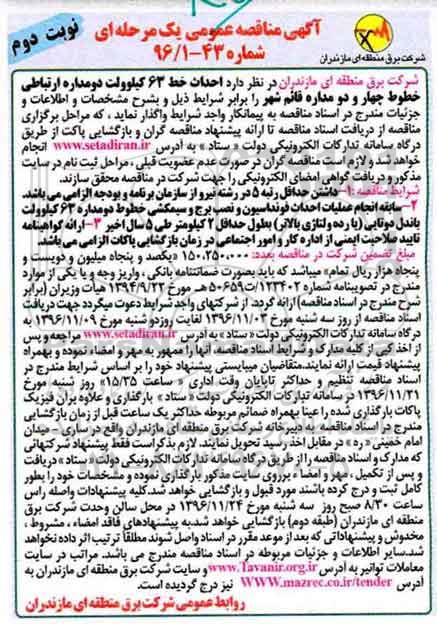 نوبت دوم
آگهی مناقصه عمومی یک مرحله ای
شماره ۴۳-۹۶/۱
شرکت برق منطقه ای مازندران
شرکت برق منطقه ای مازندران در نظر دارد احداث خط ۶۳ کیلوولت دومداره ارتباطی
خطوط چهار و دو مداره قائم شهر را برابر شرایط ذیل و بشرح مشخصات و اطلاعات و
جزئیات مندرج در اسناد مناقصه به پیمانکار واجد شرایط واگذار نماید ، که مراحل برگزاری
مناقصه از دریافت اسناد مناقصه تا ارائه پیشنهاد مناقصه گران و بازگشایی پاکت از طریق
درگاه سامانه تدارکات الکترونیکی دولت « ستاد » به آدرس www.setadiran.ir انجام
خواهد شد و لازم است مناقصه گران در صورت عدم عضویت قبلی ، مراحل ثبت نام در سایت
مذکور و دریافت گواهی امضای الکترونیکی را جهت شرکت در مناقصه محقق سازند.
شرایط مناقصه :۱- داشتن حداقل رتبه ۵ در رشته نیرو از سازمان برنامه و بودجه الزامی می باشد.
۲- سابقه انجام عملیات احداث فونداسیون و نصب برج و سیمکشی خطوط دومداره ۶۳ کیلوولت
باندل دوتایی (یا رده ولتاژی بالاتر) بطول حداقل ۲ کیلومتر طی ۵ سال اخیر ۳-ارائه گواهینامه
تایید صلاحیت ایمنی از اداره کار و امور اجتماعی در زمان بازگشایی پاکات الزامی می باشد.
مبلغ تضمین شرکت در مناقصه بعدد: ۱۵۰،۲۵۰،۰۰۰ «یکصد و پنجاه میلیون و دویست و
پنجاه هزار ریال تمام» میباشد که باید بصورت ضمانتنامه بانکی ، واریز وجه و یا یکی از موارد
مندرج در تصویبنامه شماره ۱۲۳۴۰۲/ت۵۰۶۵۹هـ مورخ ۱۳۹۴/۹/۲۲ هیأت وزیران (برابر
شرح مندرج در اسناد مناقصه) ارائه گردد. از شرکتهای واجد شرایط دعوت میگردد جهت دریافت
اسناد مناقصه از روز سه شنبه مورخ ۱۳۹۶/۱۱/۰۳ لغایت روز دو شنبه مورخ ۱۳۹۶/۱۱/۰۹ به
درگاه سامانه تدارکات الکترونیکی دولت « ستاد » به آدرس www.setadiran.ir مراجعه و پس
از اخذ کپی از کلیه مدارک و شرایط اسناد مناقصه، آنها را ممهور به مهر و امضاء نموده و بهمراه
پیشنهاد قیمت ارائه نمایند.متقاضیان میبایستی پیشنهاد خود را بر اساس شرایط مندرج در
اسناد مناقصه تنظیم و حداکثر تا پایان وقت اداری ساعت ۱۵/۳۵ روز شنبه مورخ
۱۳۹۶/۱۱/۲۱ در سامانه تدارکات الکترونیکی دولت « ستاد » بارگذاری و علاوه برآن فیزیک
پاکات بارگذاری شده را عینا بهمراه ضمائم مربوطه حداکثر یک ساعت قبل از زمان بازگشایی
مندرج در اسناد مناقصه به دبیرخانه شرکت برق منطقه ای مازندران واقع در ساری-میدان
امام خمینی « ره » در مقابل اخذ رسید تحویل نمایند. لازم بذکر است فقط پیشنهاد شرکتهائی
که مدارک و اسناد مناقصه را از طریق درگاه سامانه تدارکات الکترونیکی دولت « ستاد » دریافت
و پس از تکمیل ، مهر و امضاء برروی سایت مذکور بارگذاری نموده و مشخصات خود را بطور
کامل ثبت و درج کرده باشند مورد قبول و بازگشایی خواهد شد.کلیه پیشنهادات واصله راس
ساعت ۸/۳۰ صبح روز سه شنبه مورخ ۱۳۹۶/۱۱/۲۴ در محل سالن وحدت شرکت برق
منطقه ای مازندران (طبقه دوم) بازگشایی خواهد شد.به پیشنهادهای فاقد امضاء ، مشروط ،
مخدوش و پیشنهاداتی که بعد از موعد مقرر در اسناد واصل شوند مطلقاً ترتیب اثر داده نخواهد
شد.سایر اطلاعات و جزئیات مربوطه در اسناد مناقصه مندرج می باشد. مراتب در سایت
معاملات توانیر به آدرس www.Tavanir.org.ir وسایت شرکت برق منطقه ای مازندران به
آدرس WWW.mazrec.co.ir/tender نیز درج گردیده است.
روابط عمومی شرکت برق منطقه ای مازندران